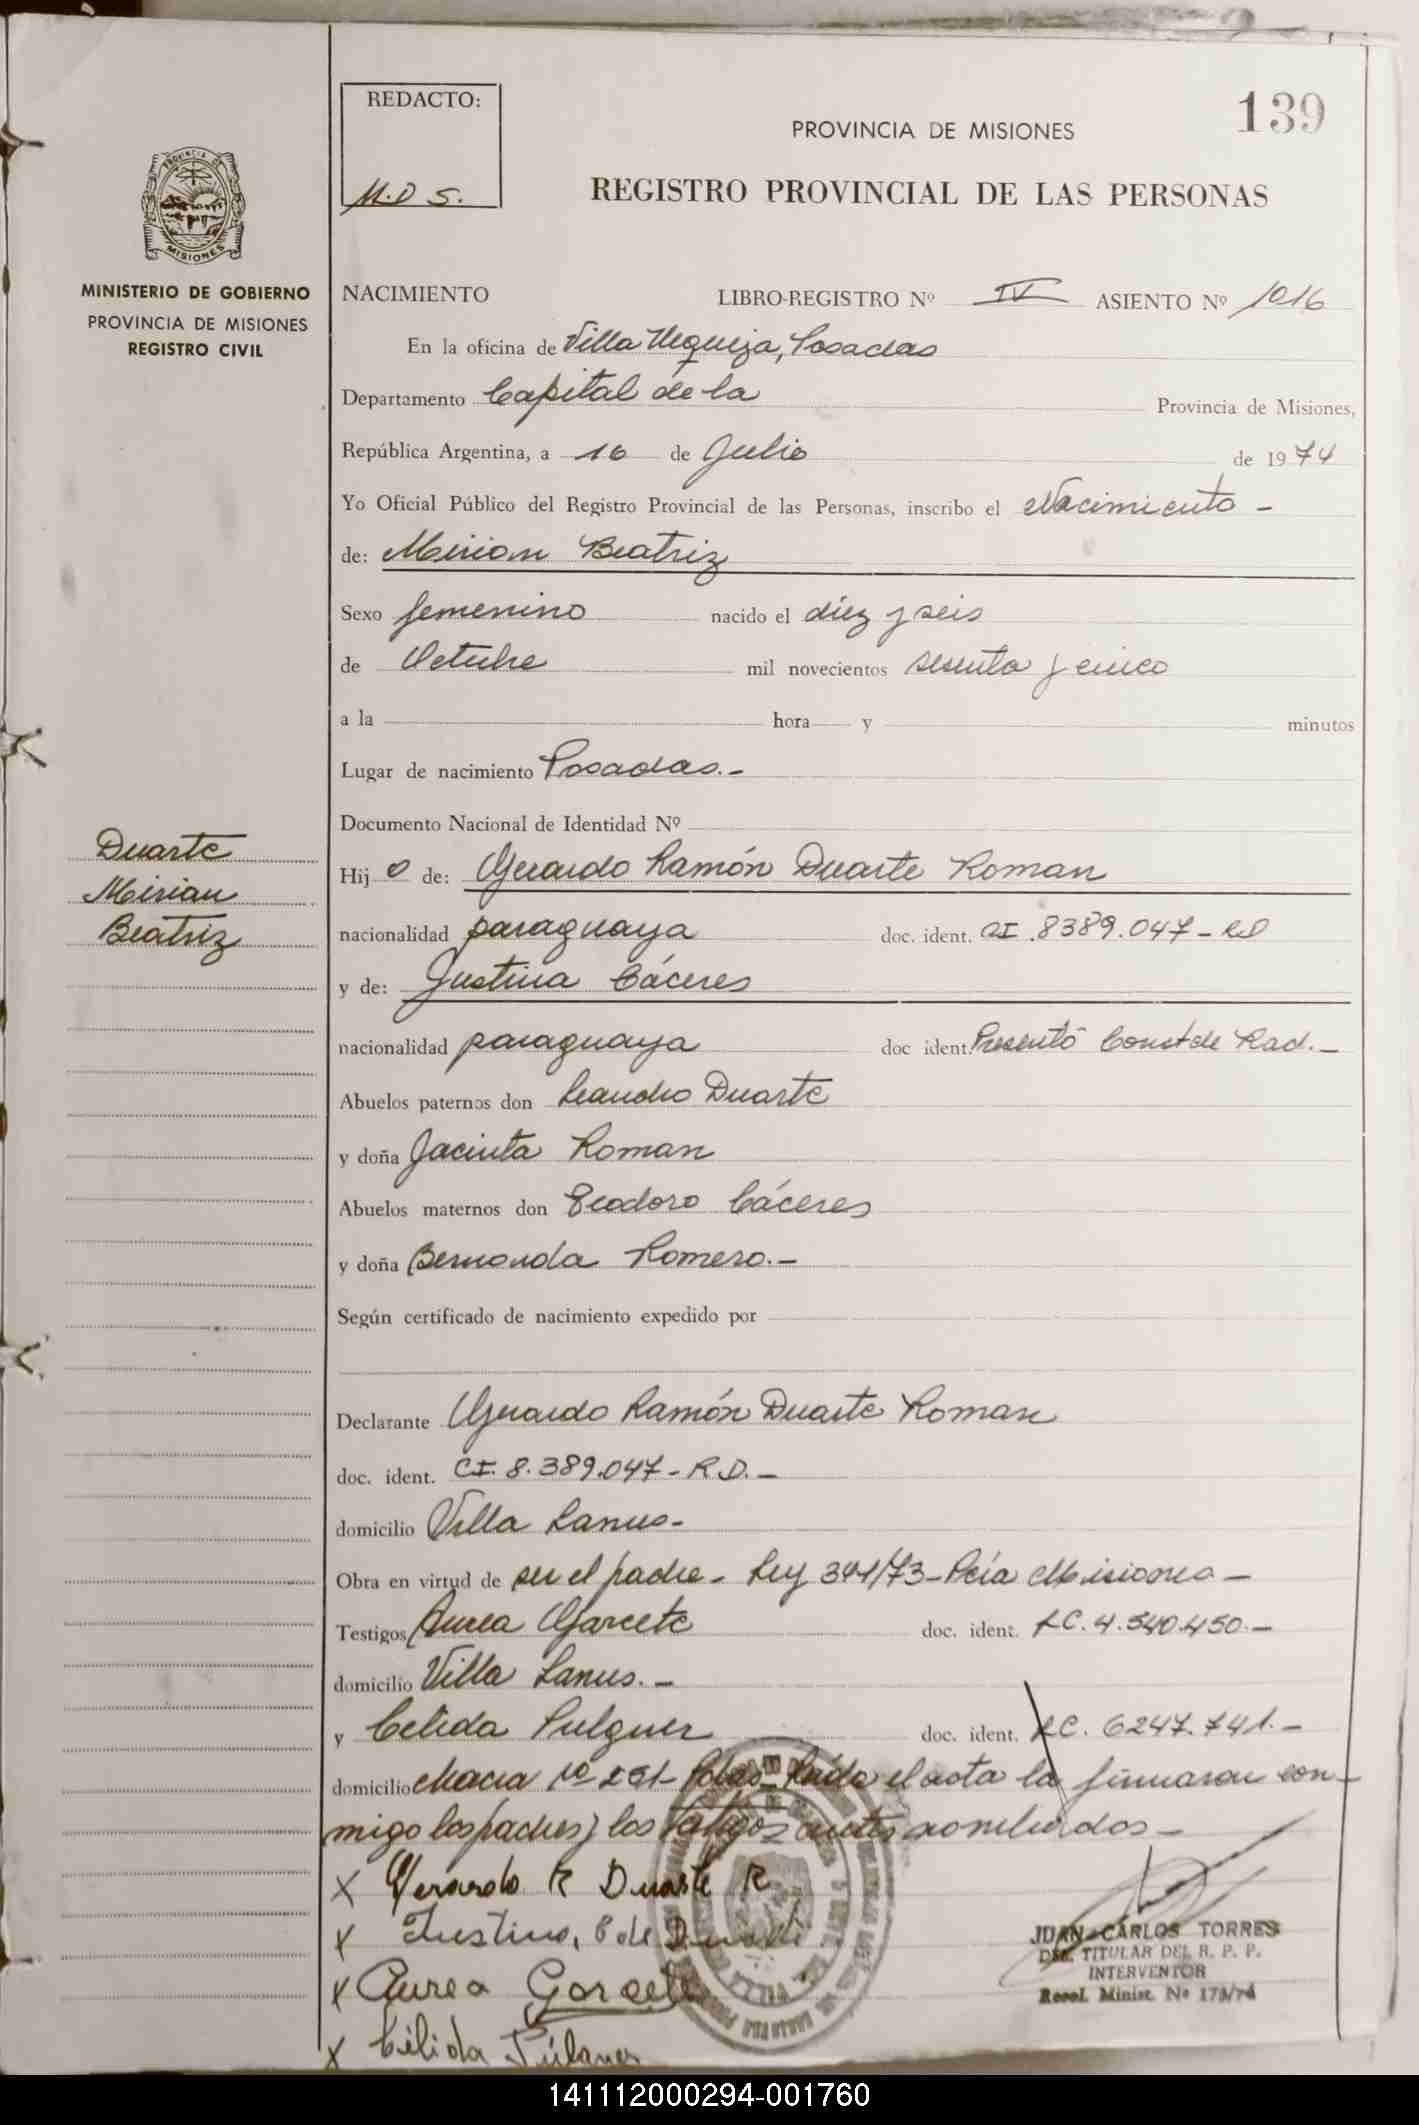 139
REDACTO:
M.D S.
PROVINCIA DE MISIONES
REGISTRO PROVINCIAL DE LAS PERSONAS
PROVINCIA DE
MISIONES
MINISTERIO DE GOBIERNO
PROVINCIA DE MISIONES
REGISTRO CIVIL
NACIMIENTO LIBRO-REGISTRO Nº IV ASIENTO Nº 1016
En la oficina de Villa Urquiza, Posadas
Departamento Capital de la Provincia de Misiones,
República Argentina, a 16 de Julio de 1974
Yo Oficial Público del Registro Provincial de las Personas, inscribo el Nacimiento -
de: Mirian Beatriz
Sexo femenino nacido el diez y seis
de Octubre mil novecientos sesenta y cinco
a la hora y minutos
Lugar de nacimiento Posadas.-
Documento Nacional de Identidad Nº
Duarte
Mirian
Beatriz
Hij a de: Gerardo Ramón Duarte Roman
nacionalidad paraguaya doc. ident. CI. 8389.047-RD
y de: Justina Cáceres
nacionalidad paraguaya doc ident. Presentó Const de Rad.-
Abuelos paternos don Leandro Duarte
y doña Jacinta Roman
Abuelos maternos don Teodoro Cáceres
y doña Bernarda Romero.-
Según certificado de nacimiento expedido por
Declarante Gerardo Ramón Duarte Roman
doc. ident. CI. 8.389.047-R.D.-
domicilio Villa Lanus-
Obra en virtud de ser el padre- Ley 341/73-Pcia Misiones-
Testigos Aurea Garcete doc. ident. LC. 4.540.450.-
domicilio Villa Lanus.-
y Celida doc. ident. LC. 6247.741.-
domicilio Chacra Nº 251- Pdas- Leída el acta la firmaron con-
migo los padres y los testigos antes nombrados-
x Gerardo R Duarte R
x Justina, C de Duarte
x Aurea Garcete
x Célida
JUAN CARLOS TORRES
TITULAR DEL R. P. P.
INTERVENTOR
Resol. Minist. Nº 173/74
141112000294-001760